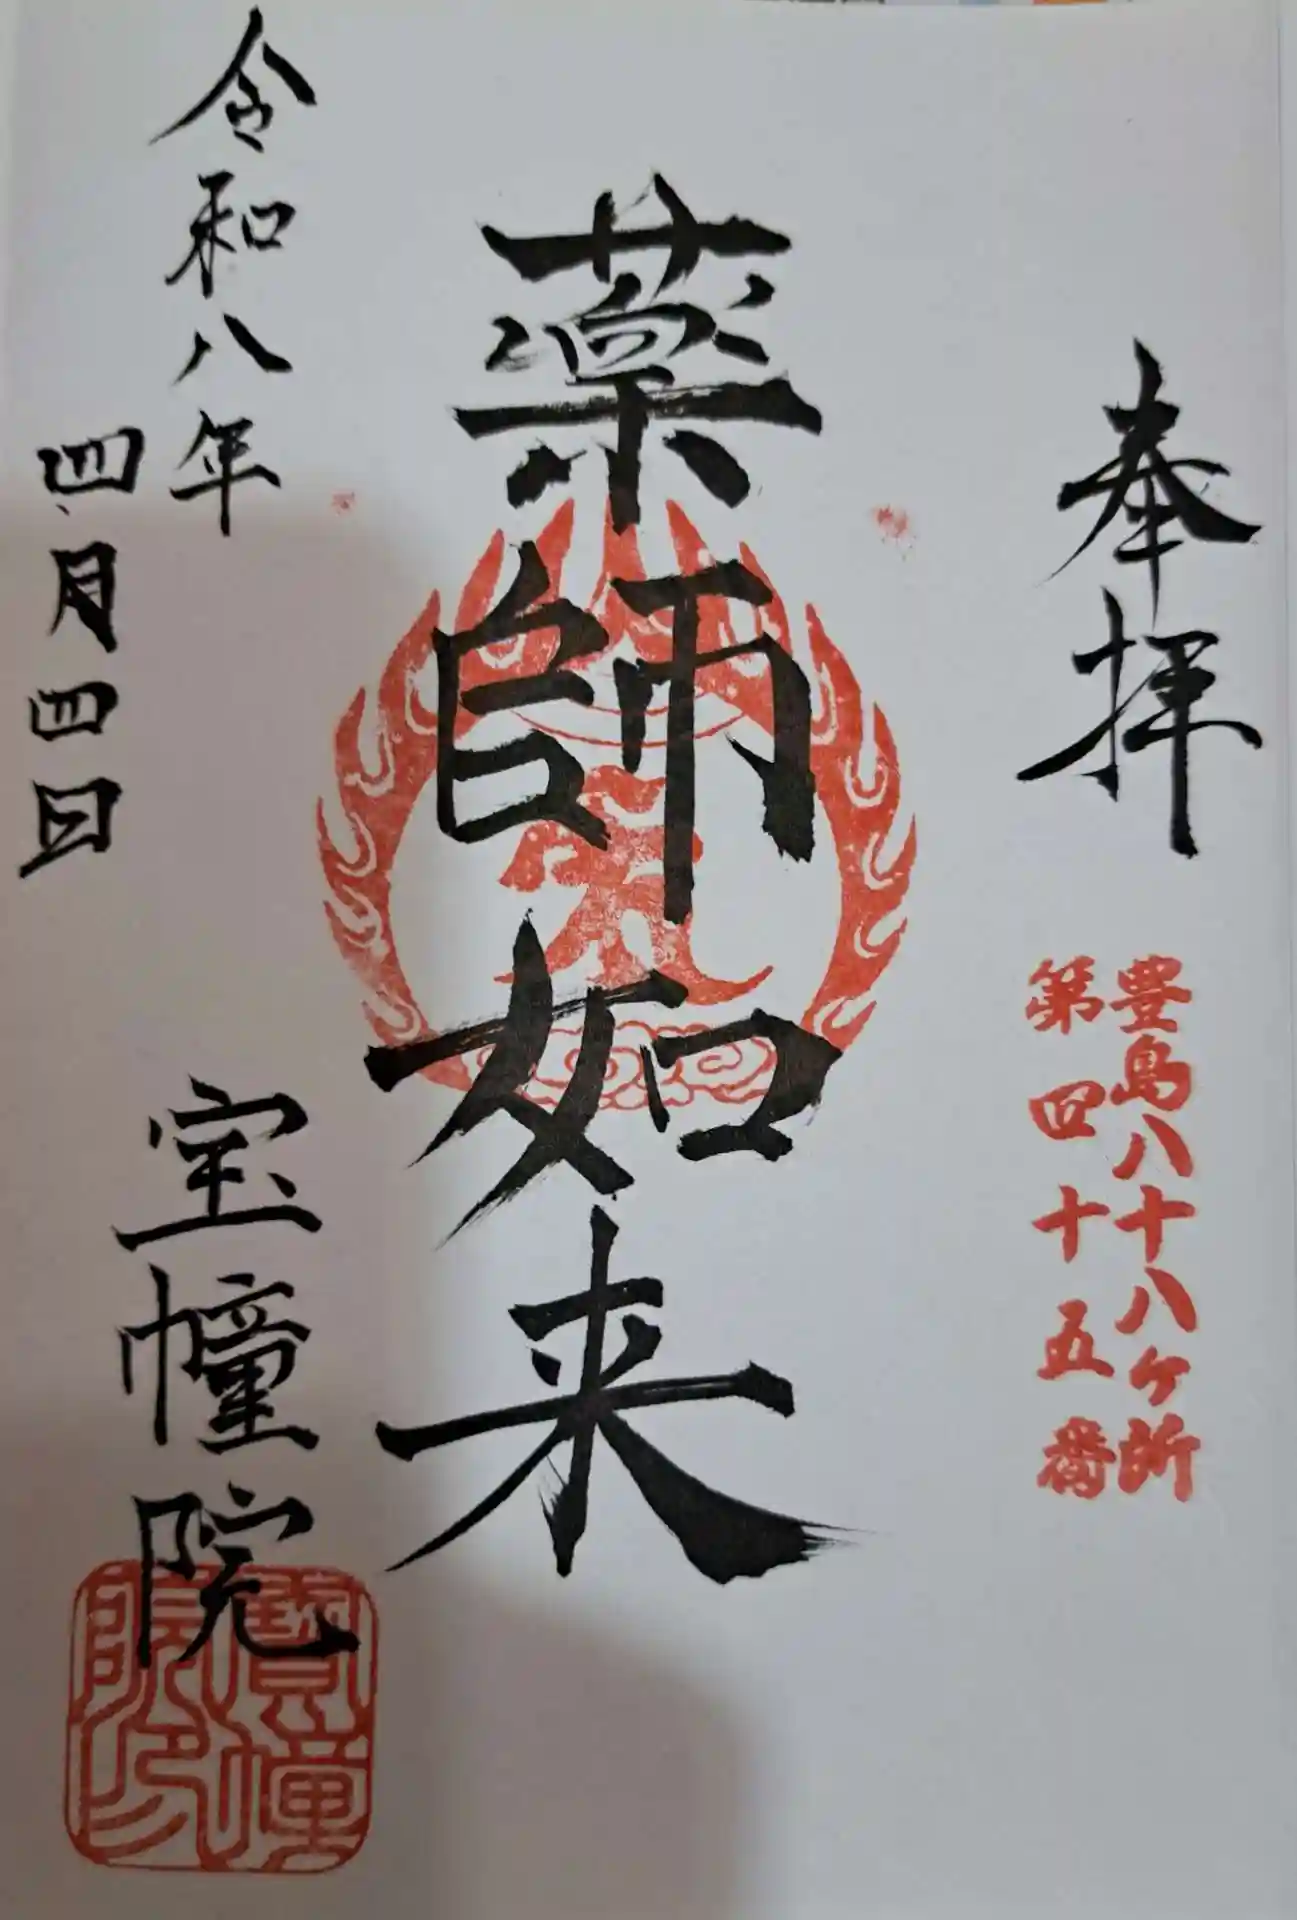 奉拝
豊島八十八ヶ所
第四十五番
薬師如来
令和八年
四月四日
宝幢院
寶幢
院印